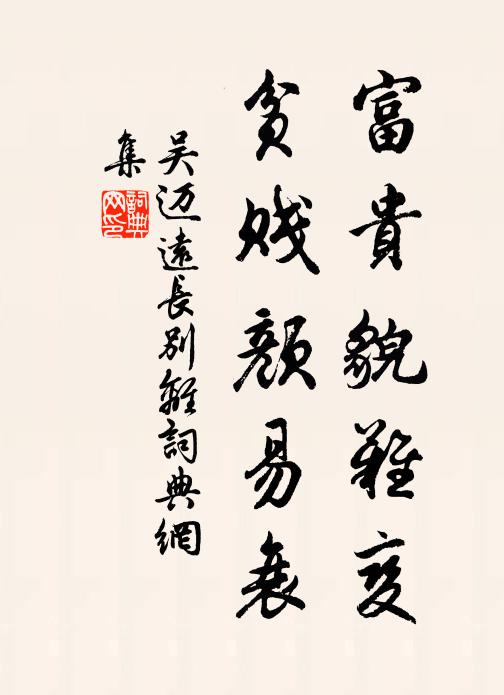 富貴貌難变
貧賤顔易衰
吴迈遠長别離詞典網
集
詞典
网印